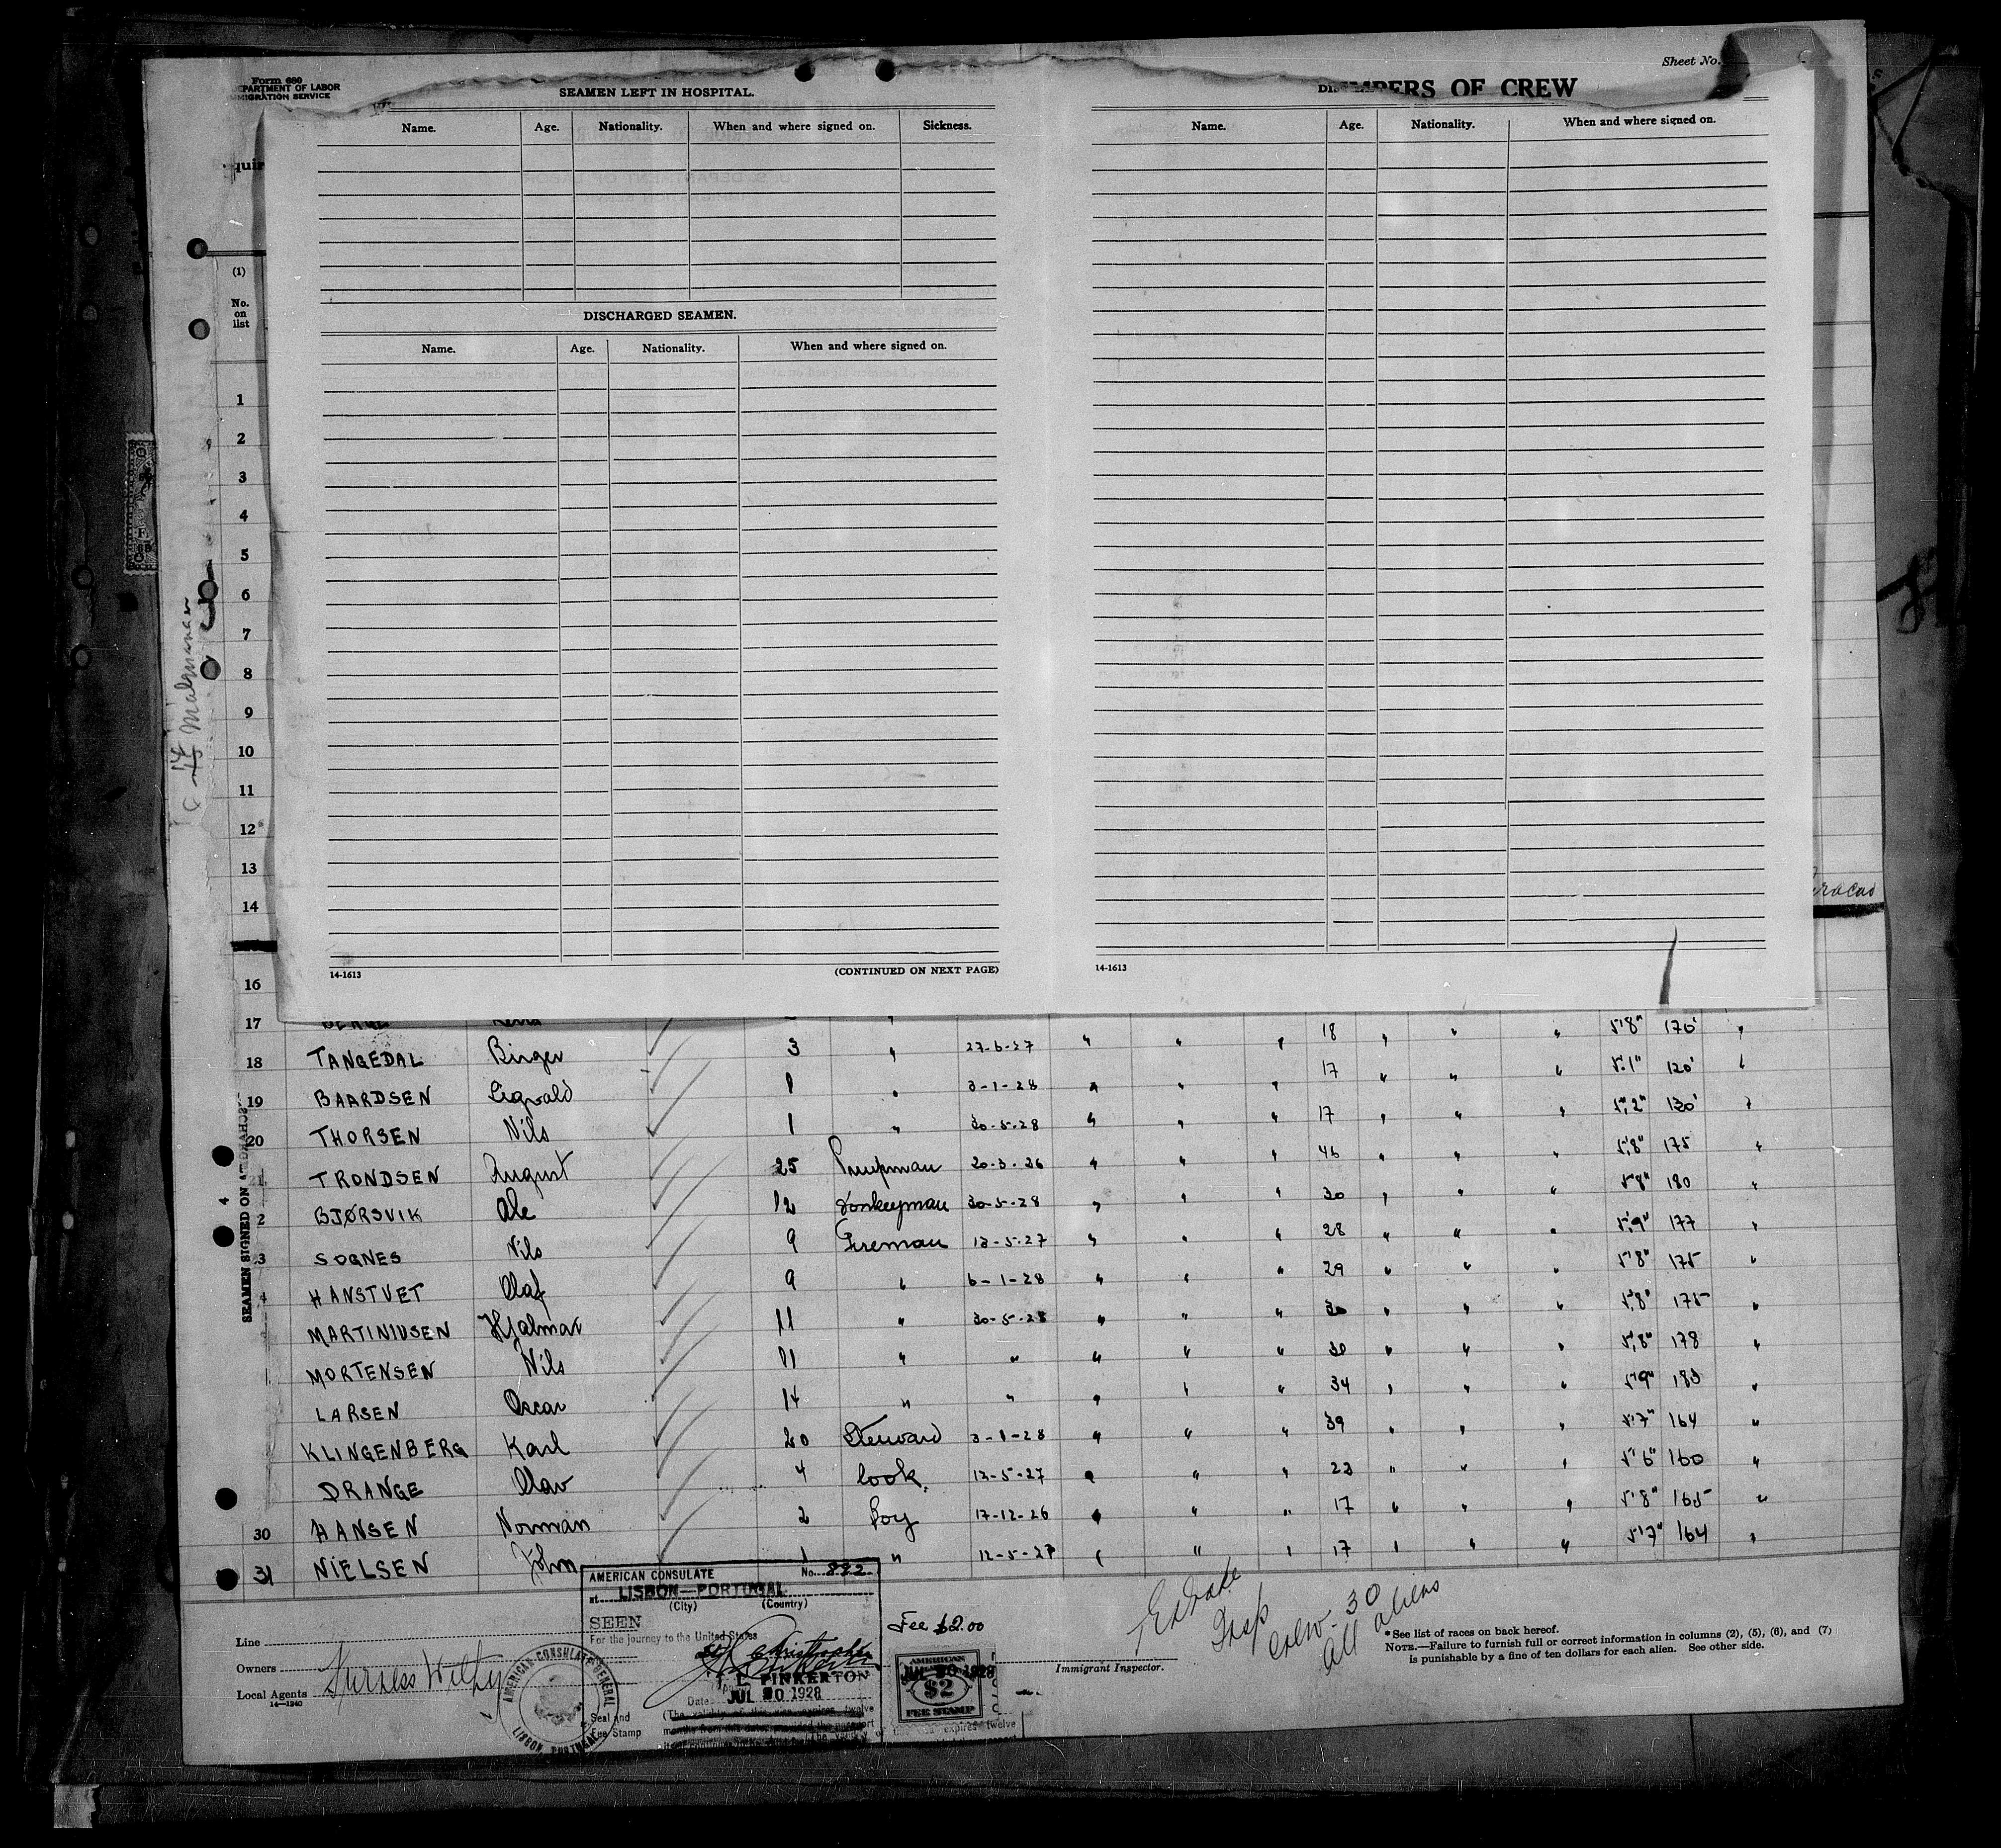 Form 680
DEPARTMENT OF LABOR
IMMIGRATION SERVICE
Sheet No.
SEAMEN LEFT IN HOSPITAL.
Name. Age. Nationality. When and where signed on. Sickness.
DISCHARGED SEAMEN.
Name. Age. Nationality. When and where signed on.
14-1613 (CONTINUED ON NEXT PAGE)
MBERS OF CREW
Name. Age. Nationality. When and where signed on.
14-1613
quir
(1)
No.
on
list
1
2
3
4
5
6
7
8
9
10
11
12
13
14
16
17 18 " " " 5'8" 170 "
18 TANGEDAL Birger 3 " 27-6-27 " " " 17 " " " 5'1" 120 "
19 BAARDSEN Sigvald 1 " 3-1-28 " " " 17 " " " 5'2" 130 "
20 THORSEN Nils 1 " 30-5-28 " " " 46 " " " 5'8" 175 "
21 TRONDSEN August 25 Pumpman 20-3-26 " " " 30 " " " 5'8" 180 "
2 BJØRSVIK Ole 12 Donkeyman 30-5-28 " " " 28 " " " 5'9" 177 "
3 SOGNES Nils 9 Fireman 13-5-27 " " " 29 " " " 5'8" 175 "
4 HANSTVET Olaf 9 " 6-1-28 " " " 30 " " " 5'8" 175 "
MARTINIUSEN Hjalmar 11 " 30-5-28 " " " 30 " " " 5'8" 178 "
MORTENSEN Nils 11 " " " " " 34 " " " 5'9" 183 "
LARSEN Oscar 14 " " " " " 39 " " " 5'7" 164 "
KLINGENBERG Karl 20 Steward 3-1-28 " " " 23 " " " 5'6" 160 "
DRANGE Olav 4 Cook. 13-5-27 " " " 17 " " " 5'8" 165 "
30 HANSEN Norman 2 Boy 17-12-26 " " " 17 " " " 5'7" 164 "
31 NIELSEN John 1 " 12-5-27 " "
SEAMEN SIGNED ON
4
Line
Owners
Local Agents Furness Withy
14-1240
AMERICAN CONSULATE GENERAL
LISBON, PORTUGAL
AMERICAN CONSULATE No. 892
at LISBON—PORTUGAL
(City) (Country)
SEEN
For the journey to the United States
L. PINKERTON
Date JUL 30 1928
Seal and
Fee Stamp
Fee $2.00
AMERICAN
JUL 30 1928
$2
FEE STAMP
Immigrant Inspector.
Insp
Crew - 30
all aliens
*See list of races on back hereof.
NOTE.—Failure to furnish full or correct information in columns (2), (5), (6), and (7)
is punishable by a fine of ten dollars for each alien. See other side.